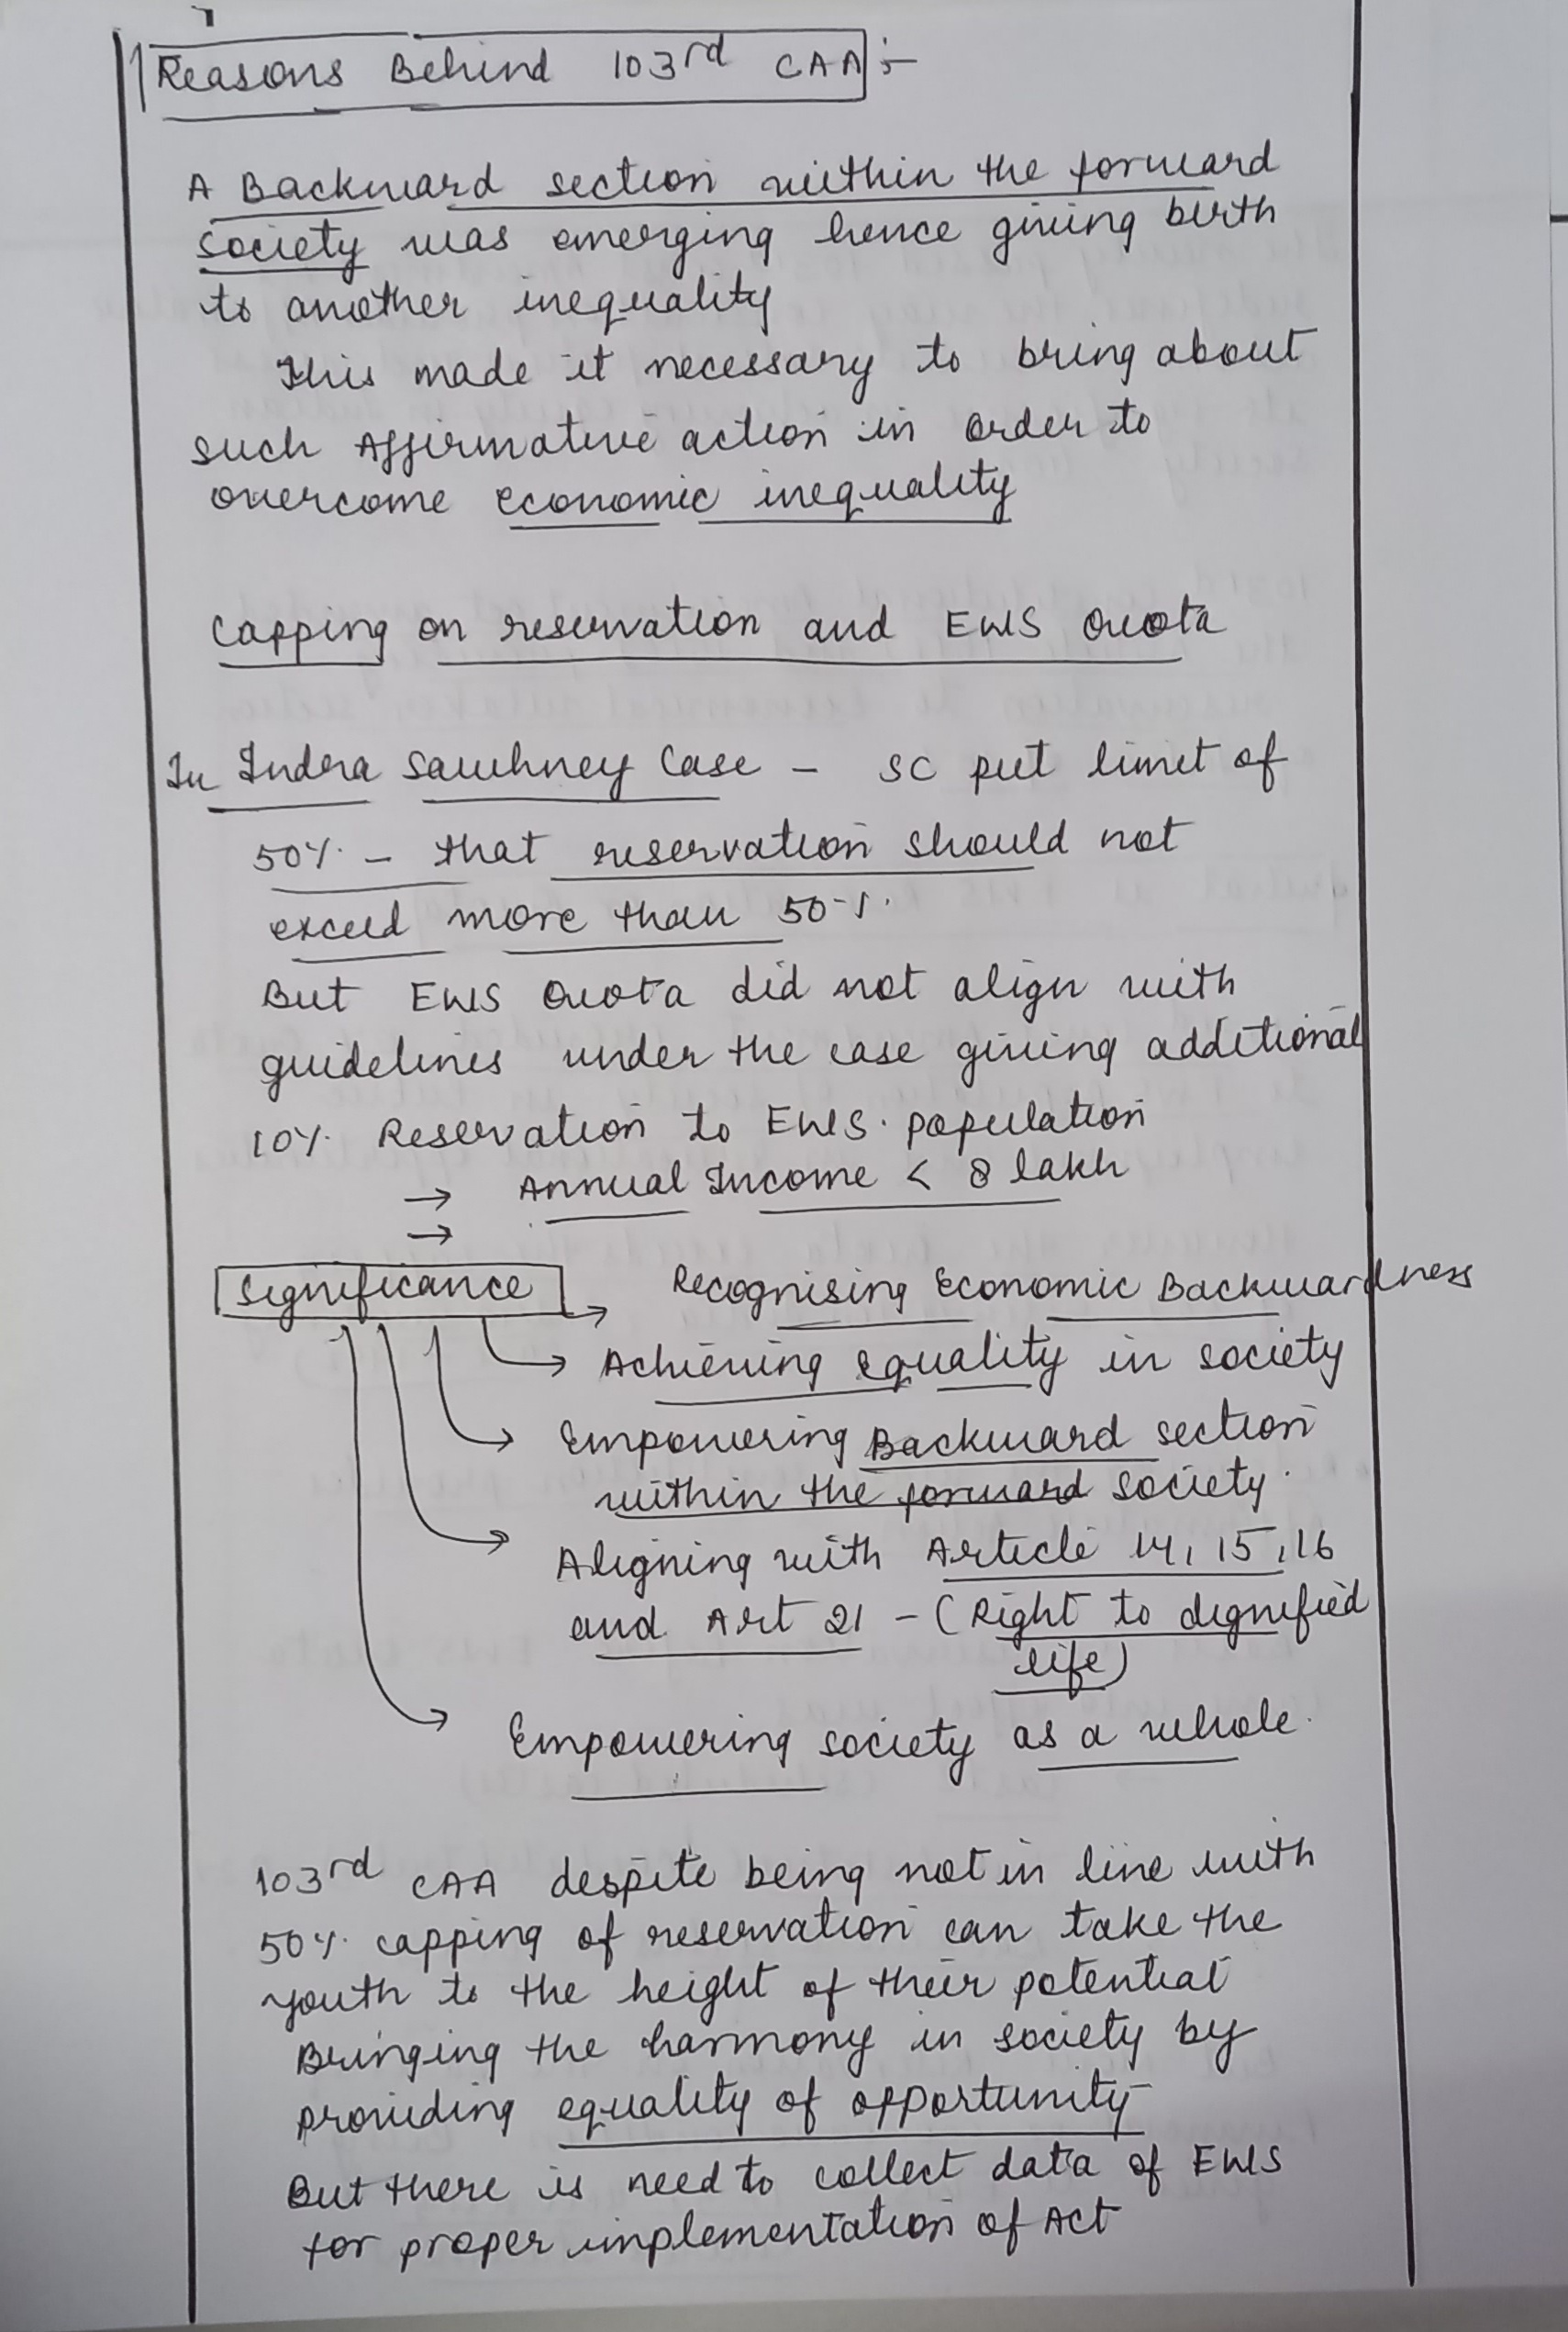 Reasons Behind 103rd CAA :-
A Backward section within the forward
society was emerging hence giving birth
to another inequality
This made it necessary to bring about
such Affirmative action in order to
overcome economic inequality
Capping on reservation and EWS Quota
In Indra Sawhney Case - SC put limit of
50% - that reservation should not
exceed more than 50%.
But EWS Quota did not align with
guidelines under the case giving additional
10% Reservation to EWS. population
→ Annual Income < 8 lakh
→
Significance → Recognising Economic Backwardness
→ Achieving equality in society
→ Empowering Backward section
within the forward society.
→ Aligning with Article 14, 15, 16
and Art 21 - (Right to dignified
life)
→ Empowering society as a whole.
103rd CAA despite being not in line with
50% capping of reservation can take the
youth to the height of their potential
Bringing the harmony in society by
providing equality of opportunity
But there is need to collect data of EWS
for proper implementation of Act